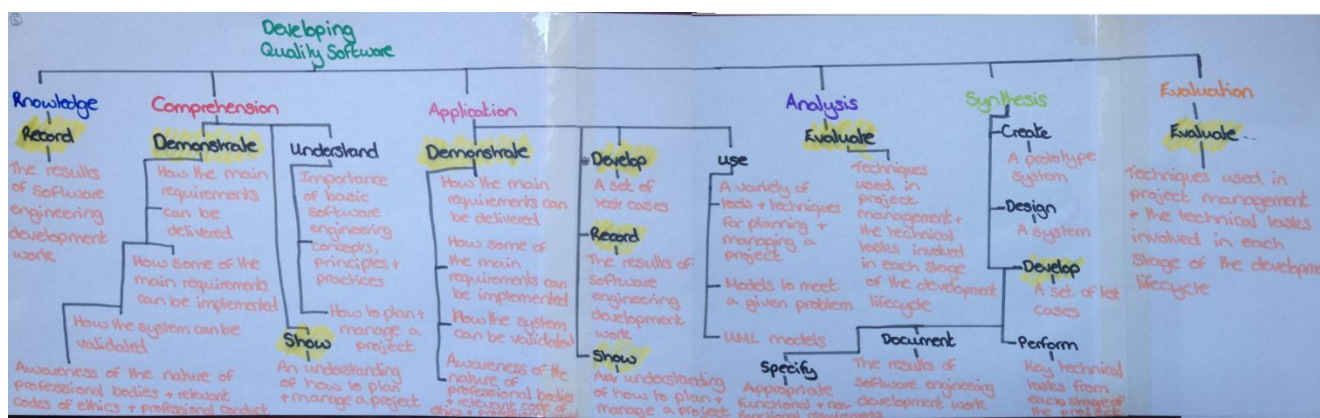 Developing
Quality Software
Knowledge
Record
The results
of software
engineering
development
work.
Comprehension
Demonstrate
How the main
requirements
can be
delivered
How some of the
main requirements
can be implemented
How the system can be
validated
Awareness of the nature of
professional bodies + relevant
codes of ethics + professional conduct
understand
Importance
of basic
software
engineering
concepts,
principles +
practices
How to plan +
manage a
project
Show
An understanding
of how to plan
+ manage a project
Application
Demonstrate
How the main
requirements can
be delivered
How some of
the main
requirements can
be implemented
How the system
can be validated
Awareness of the
nature of
professional bodies
+ relevant code of
ethics +
Develop
A set of
test cases
Record
The results of
software
engineering
development
work
Show
An understanding
of how to plan +
manage a project
use
A variety of
tools + techniques
for planning +
managing a
project
Models to meet
a given problem
UML models
Analysis
Evaluate
Techniques
used in
project
management +
the technical
tasks involved
in each stage
of the development
lifecycle
Synthesis
Create
A prototype
system
Design
A system
Develop
A set of test
cases
Perform
Key technical
tasks from
each stage of
the project
Document
The results of
software engineering
development work
Specify
Appropriate
functional + non-
functional requirements
Evaluation
Evaluate...
Techniques used in
project management
+ the technical tasks
involved in each
stage of the developme
lifecycle